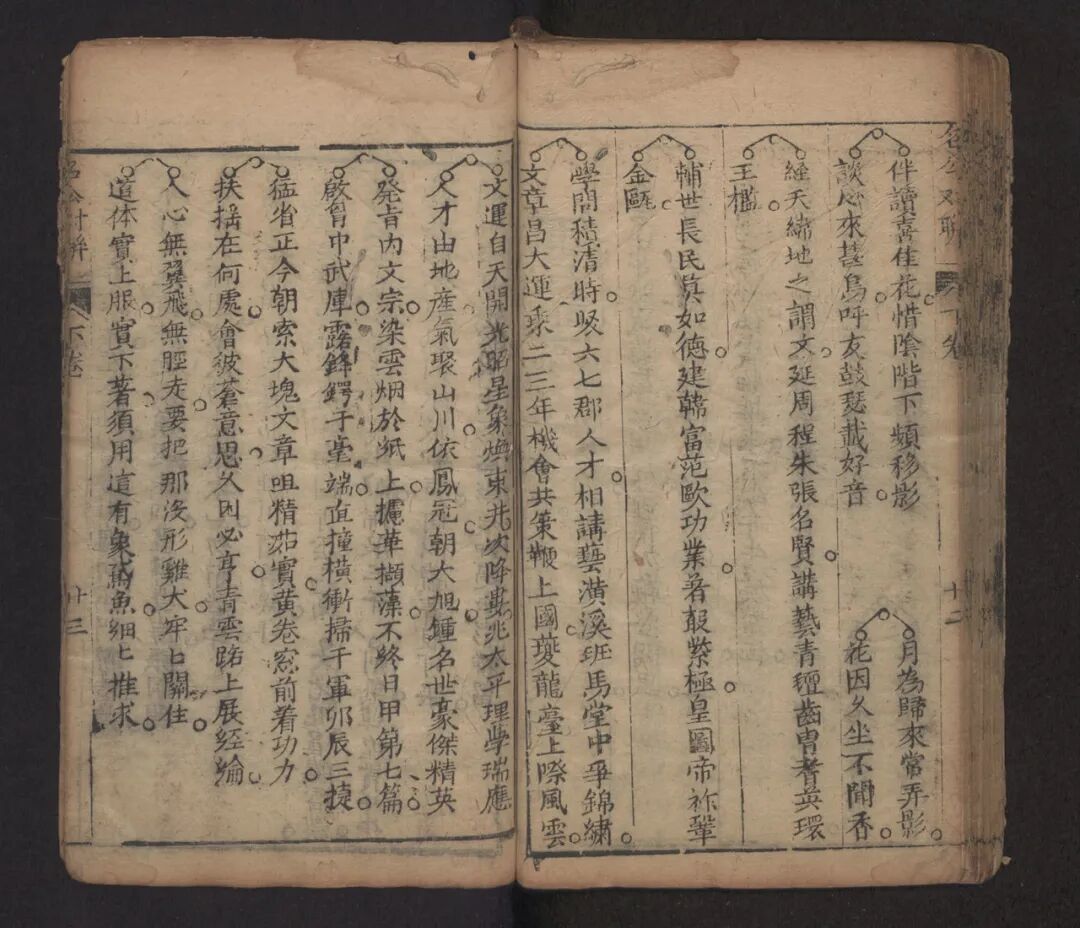 名公对聯
下卷
十二
伴讀喜佳花惜陰階下頻移影
月為歸來常弄影
談心來甚鳥呼友鼓瑟哉好音
花因久坐不聞香
經天緯地之謂文延周程朱張名賢講藝青氊齒胄耆英環
玉檻
輔世長民莫如德建韓富范歐功業著極皇圖帝祚鞏
金甌
學問積清時吸六七郡人才相講藝溪班馬堂中爭錦繡
文章昌大運乘二三年機會共策鞭上國夔龍臺上際風雲
文運自天開光昭星象煥東井次降婁兆太平理學瑞應
人才由地產氣聚山川依鳳冠朝大旭鍾名世豪傑精英
發旨內文宗染雲烟於紙上攄華擷藻不終日甲第七篇
啟胷中武庫露鋒鍔于毫端直撞橫衝掃千軍卯辰三捷
猛省正今朝索大塊文章咀精茹實黃卷窓前着功力
扶搖在何處會彼蒼意思久困必亨青雲路上展經綸
人心無翼飛無脛走要把那沒形雞犬牢匕關住
道体實上服實下著須用這有象鳶魚細匕推求
下卷
十三